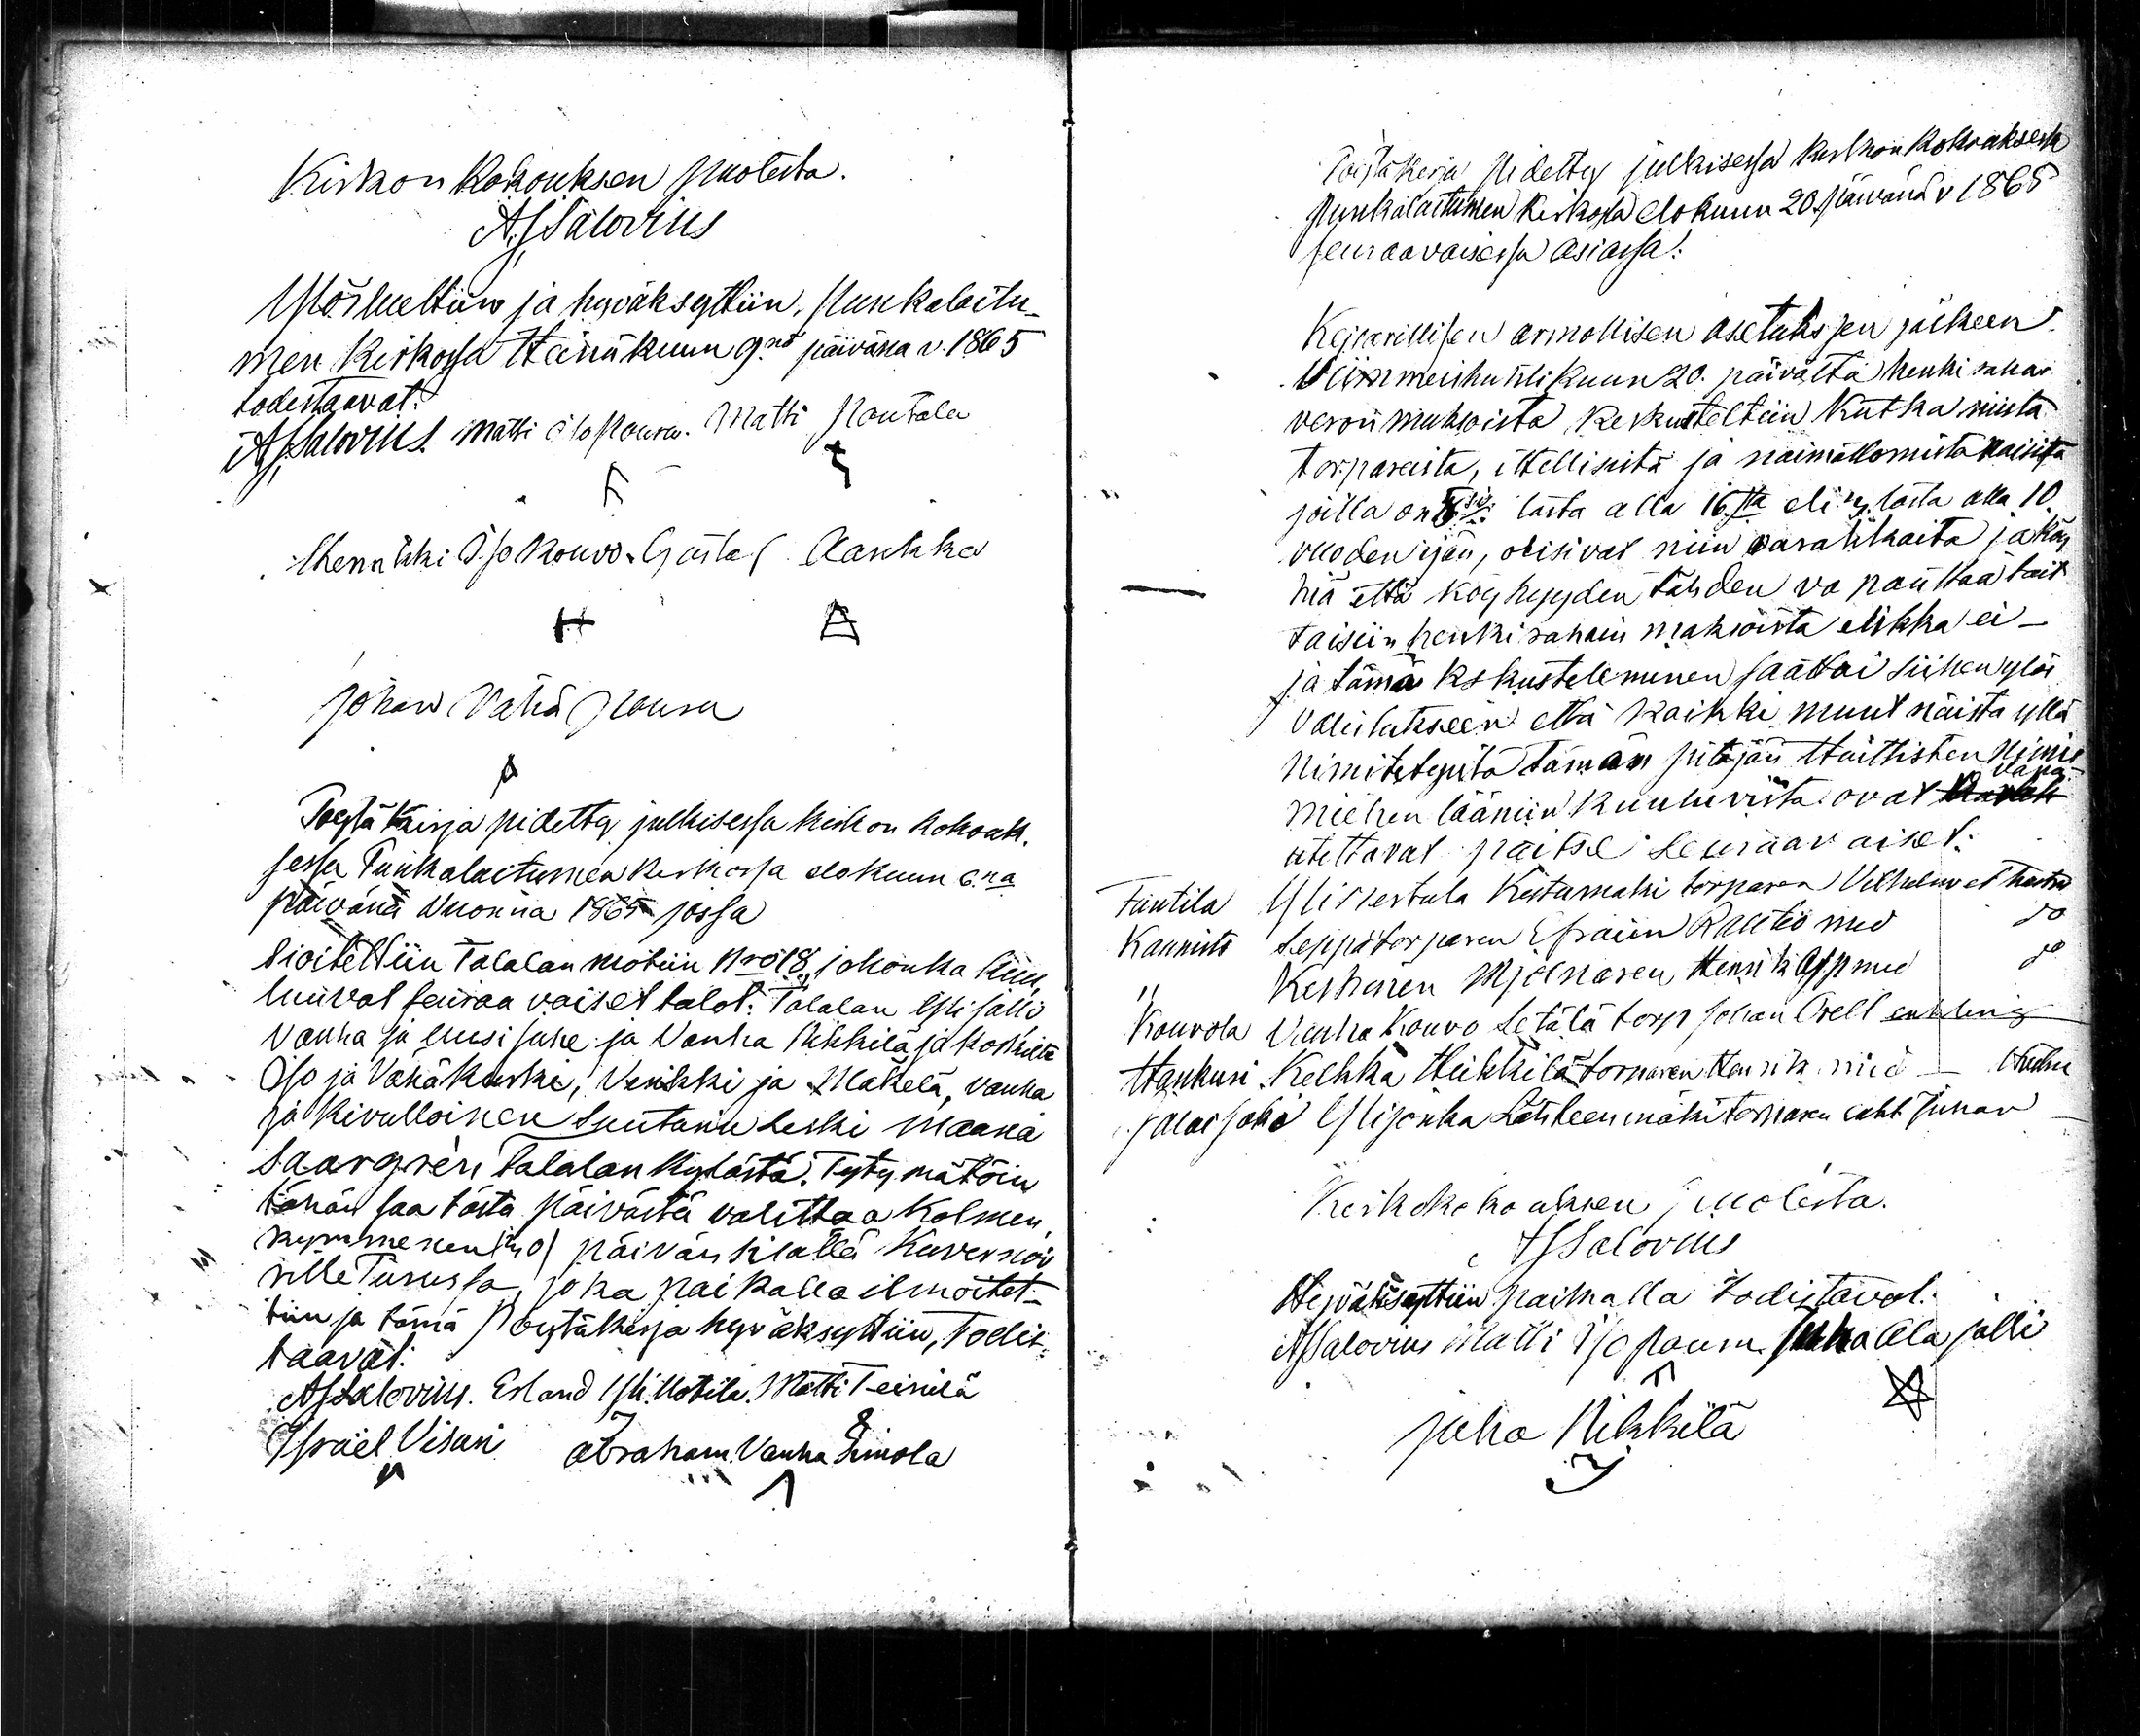 Kirkon Kokouksen puolesta.
AJSalovius
Ylösluettiin ja hyväksyttiin, Punkalaitu-
men Kirkossa Heinäkuun 9nä päivänä v. 1865
todestaavat:
AJSalovius. Matti Iso Poura. Matti Poutala
Henrikki Iso Kouvo. Gustaf Aantkka
Johan Vähä Poura
Poytä Kirja pidetty julkisessa kirkon kokouk.
sessa Punkalaitumen kirkossa elokuun 6.na
päivänä Wuonna 1865 jossa
sioitettiin Talalan motiin Nro 18, johonka kuu,
luuvat seuraavaiset talot: Talalan Yli jalli
Vanha ja Uusi juhe ja Vanha Nikkilä ja Koskelta
Iso ja Vähäkuski, Venkki ja Mäkelä, vanha
ja kivulloinen Suutarin Leski Maana
Saargren Talalan Kylästä. Tyty mätöin
tähän saa tästä päivästä valittaa Kolmen,
kymmenen päivän sisällä Kuvernöö
rille Turussa, joka paikalla ilmoitet-
tiin ja tämä Poytäkirja hyväksyttiin, Todis,
taavat:
AJSalovius. Erland Yli Kotila. Matti Teinilä
Israel Visuri Abraham Vanha Simola
Poytäkirja Pidetty julkisessa kirkon Kokouksessa
Punkalaitumen Kirkossa elokuun 20. päivänä v 1865
seuraavaisessa asiassa:
Keisarillisen armollisen asetuksen jälkeen
Viimmeis huhtikuun 20. päivältä henki rahan
veron maksoista keskusteltiin Kutka niistä
torpareista, ittellisistä ja naimattomista naisista
joilla on lasta alla 16 eli lasta alla 10
vuoden ijän, olisivat niin varattomia ja köy
hiä että köyhyyden tähden vapauttaa tait
taisiin henki rahain maksoista elikka ei -
ja tämä keskusteleminen saattoi siihen ylös
valistukseen että kaikki muut näistä yllä
nimitetyistä tämän pitäjän Huittisten Nimis
miehen lääniin kuuluvista ovat vapa-
utettavat paitse seuraavaiset:
Kannisto Leppä torparen Efraim Rautio med do
" Keskinen Mjölnaren Henrik App med do
Kouvola Vanha Kouvo Letälä torp Johan Orell
Hankuri Kelhkä Heikkilä torparen Henrik med - Hustru
Jalasjoki Ylijonka Lähteenmäki torparen Juhan
Kirkokokouksen puolesta.
AJSalovius
Hyväksyttiin paikalla todistavat:
AJSalovius Matti Iso Poura Juha Ala jalli
Juha Nikkilä